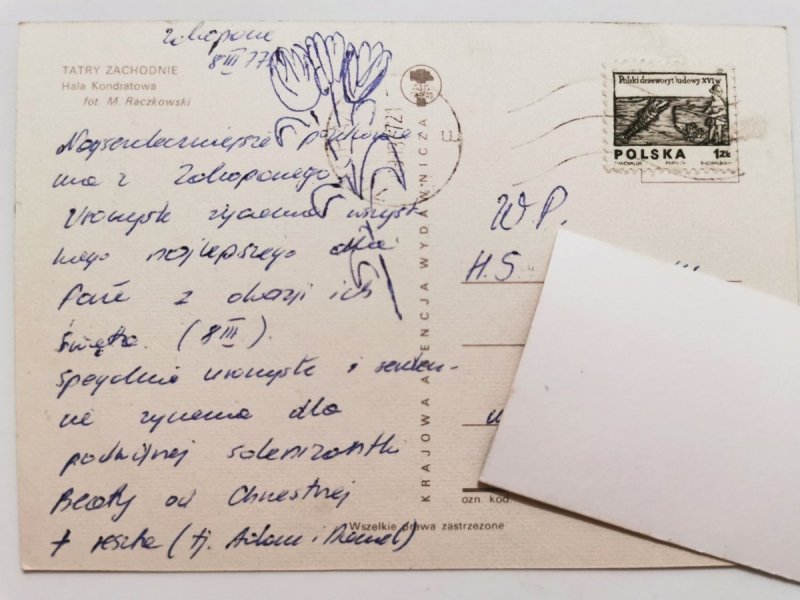 Zakopane
8 III 77
TATRY ZACHODNIE
Hala Kondratowa
fot. M. Raczkowski
Najserdeczniejsze pozdrowie
nia z Zakopanego
Uroczyste życzenia wszyst
kiego najlepszego dla
Pań z okazji ich
Święta. (8 III).
Specjalnie uroczyste i serdecz-
ne życzenia dla
podwójnej solenizantki
Beaty od Chrzestnej
+ reszta (tj. Adam i Kamel)
KRAJOWA AGENCJA WYDAWNICZA
Polski drzeworyt ludowy XVI w.
POLSKA 1 ZŁ
W P.
H. S
ozn. kod.
Wszelkie prawa zastrzeżone